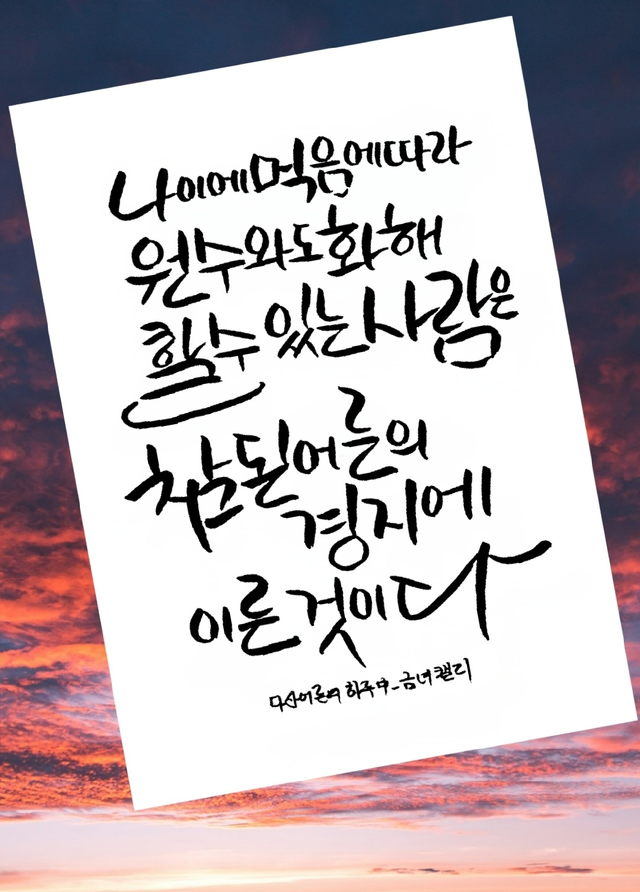 나이에먹음에따라
원수와도화해
할수있는사람은
참된어른의
경지에
이른것이다
어른의 하루 中_금녀캘리